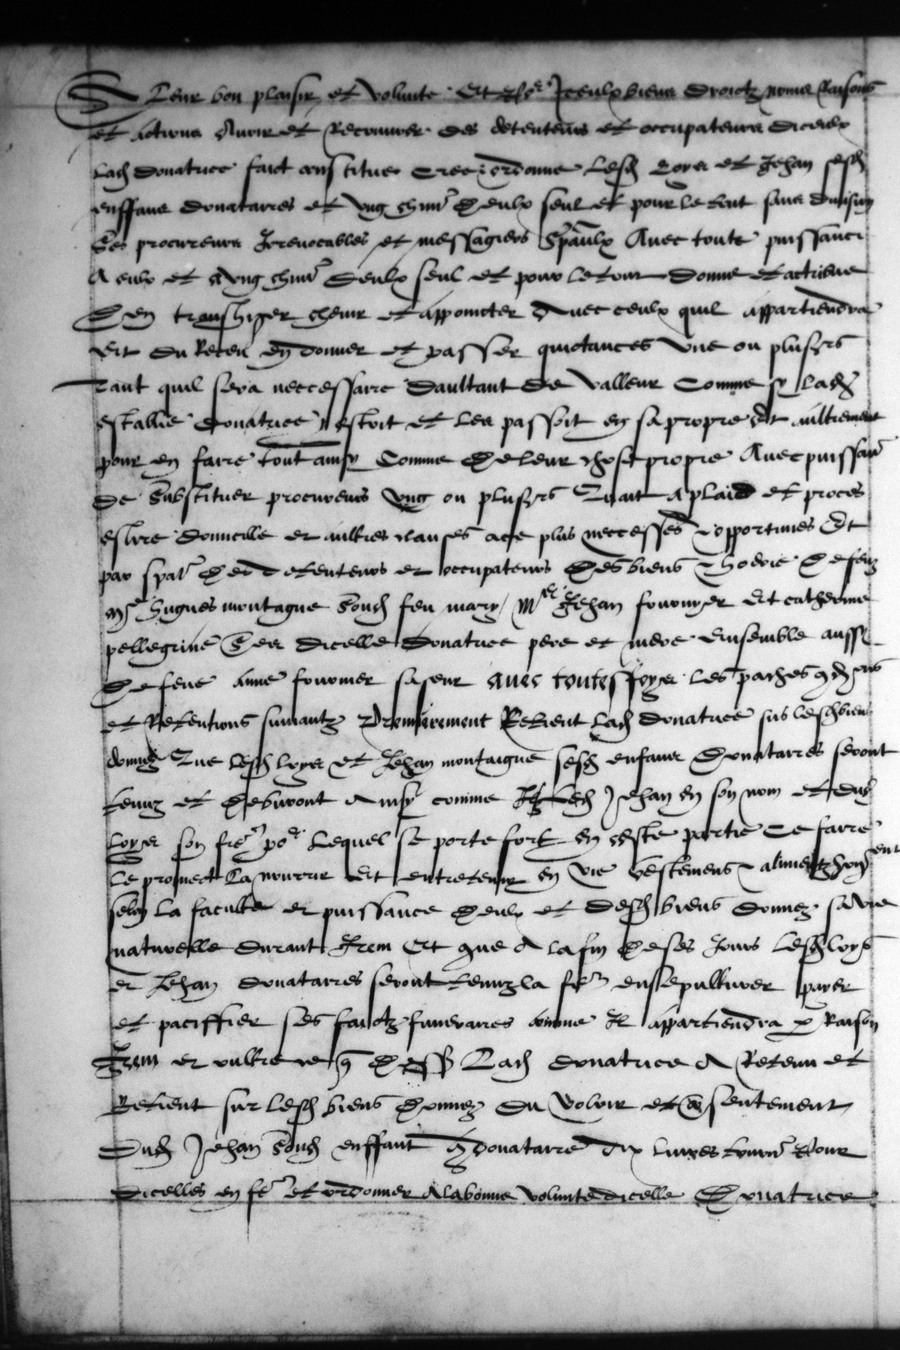 A leur bon plaisir et volunte Et Iceulx biens droictz noms Raisons
et actions Avoir et Recouvrer des detenteurs et occupateurs diceulx
Lad donatrice faict constitue Cree ordonne lesd Loyse et Jehan sesd
enffans donatarres et ung chun d'eulx seul et pour le tout sans division
Ses procureurs Irrevocables et messagiers spaulx Avec toute puissance
A eulx et A ung chun d'eulx seul et pour le tout donne et actribue
D en transhiger chevir et appoincter Avec ceulx quil appartiendra
Et du Receu en donner et passer quictances une ou plusrs
Tant quil sera neccessaire daultant de valleur Comme sy lad
establie donatrice y estoit et les passoit en sa propre et aultrement
pour en faire tout ainsy Comme de leur chose propre Avec puissance
de substituer procureurs ung ou plusrs Quant A plaid et proces
eslire domicille et aultres clauses acte plus neccesses et opportunes Et
par spal des detenteurs et occupateurs des biens de feuz
me hugues montague feu mary me Jehan fournyer Et catherine
pellegrine dicelle donatrice pere et mere Ensemble aussi
de feue anne fournier sa seur avec toutesfoyes les paches
et Retentions suivantz Premierement Retient Lad donatrice sus lesd biens
donnez Que lesd Loyse et Jehan montaigue sesd enfans donatarres seront
tenuz et debvront Ainsy comme led Jehan en son nom et dud
Loyse son fre po lequel se porte fort en ceste partie Ce faire
le promect La nourrir et entretenir en vie vestemens et alimentz
selon la faculte et puissance d'eulx et desd biens donnez sa vie
naturelle durant Item Et que A la fin de ses Jours lesd Loys
et Jehan donatarres seront tenuz la fre ensepulturer payer
et paciffier ses faictz funeraires comme Il appartiendra p Raison
Item et oultre ce q dess Lad donatrice A Retenu et
Retient sur lesd biens donnez Du voloir et consentement
Dud Jehan enffant donatarre dix livres tourn Pour
Dicelles en fe et ordonner A la bonne volunte dicelle Donatrice